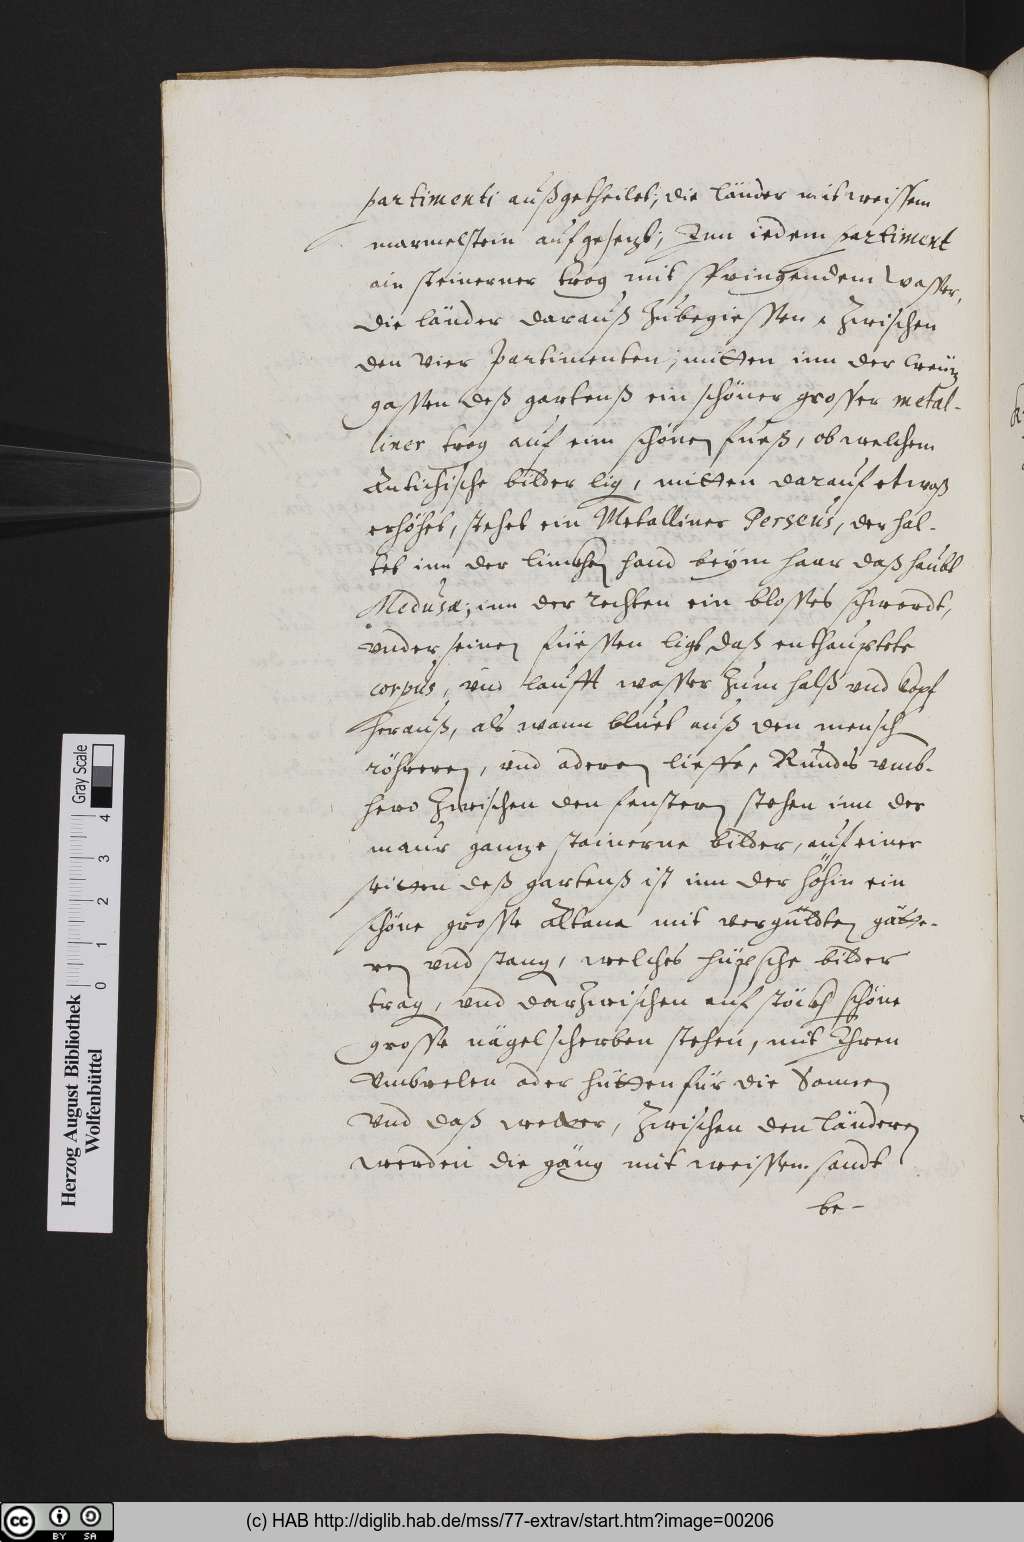 partimenti außgetheilet, die länder mit weissem
marmelstein aufgesezt; Inn iedem partiment
ain steinerner trog mit springendem wasser,
die länder darauß zubegiessen, zwischen
den vier Partimenten, mitten inn der Creüz
gassen deß gartenß ein schöner grosser metal-
liner trog auf eim schönen fueß, ob welchem
Antichische bilder lig, mitten darauf etwaß
erhöhet, stehet ein Metalliner Perseus, der hal-
tet inn der linckhen hand beÿm haar daß haubt
Medusæ, inn der rechten ein blosses schwerdt,
vnder seinen füessen ligt daß enthauptete
corpus, vnd laufft wasser zum halß vnd kopf
herauß, als wann bluet auß den mensch
röhreren, vnd aderen lieffe, Rundes vmb-
hero zwischen den fenstern stehen inn der
maur ganze stainerne bilder, auf einer
seitten deß gartenß ist inn der höhin ein
schöne grosse Altana mit vergüldten gätte-
ren vnd stang, welches hüpsche bilder
trag, vnd darzwischen auf stöckh schöne
grosse nägelscherben stehen, mit Ihren
Vmbrelen oder hütten für die Sonnen
vnd daß wetter, zwischen den länderen
werden die gäng mit weissem sandt
be-
Herzog August Bibliothek
Wolfenbüttel
Gray Scale
0 1 2 3 4
cc BY SA
(c) HAB http://diglib.hab.de/mss/77-extrav/start.htm?image=00206